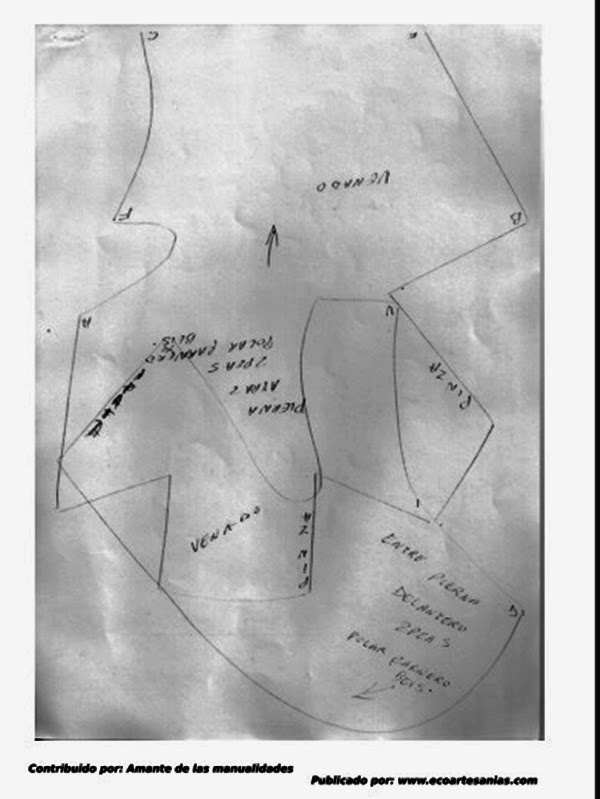 C
E
VENADO
F
B
A
PINZA
PIERNA
ATRAZ
2PZAS
POLAR CARNERO
BEIS.
VENADO
PINZA
I
ENTRE PIERNA
DELANTERO
2PZAS
POLAR CARNERO
BEIS.
D
Contribuido por: Amante de las manualidades
Publicado por: www.ecoartesanias.com